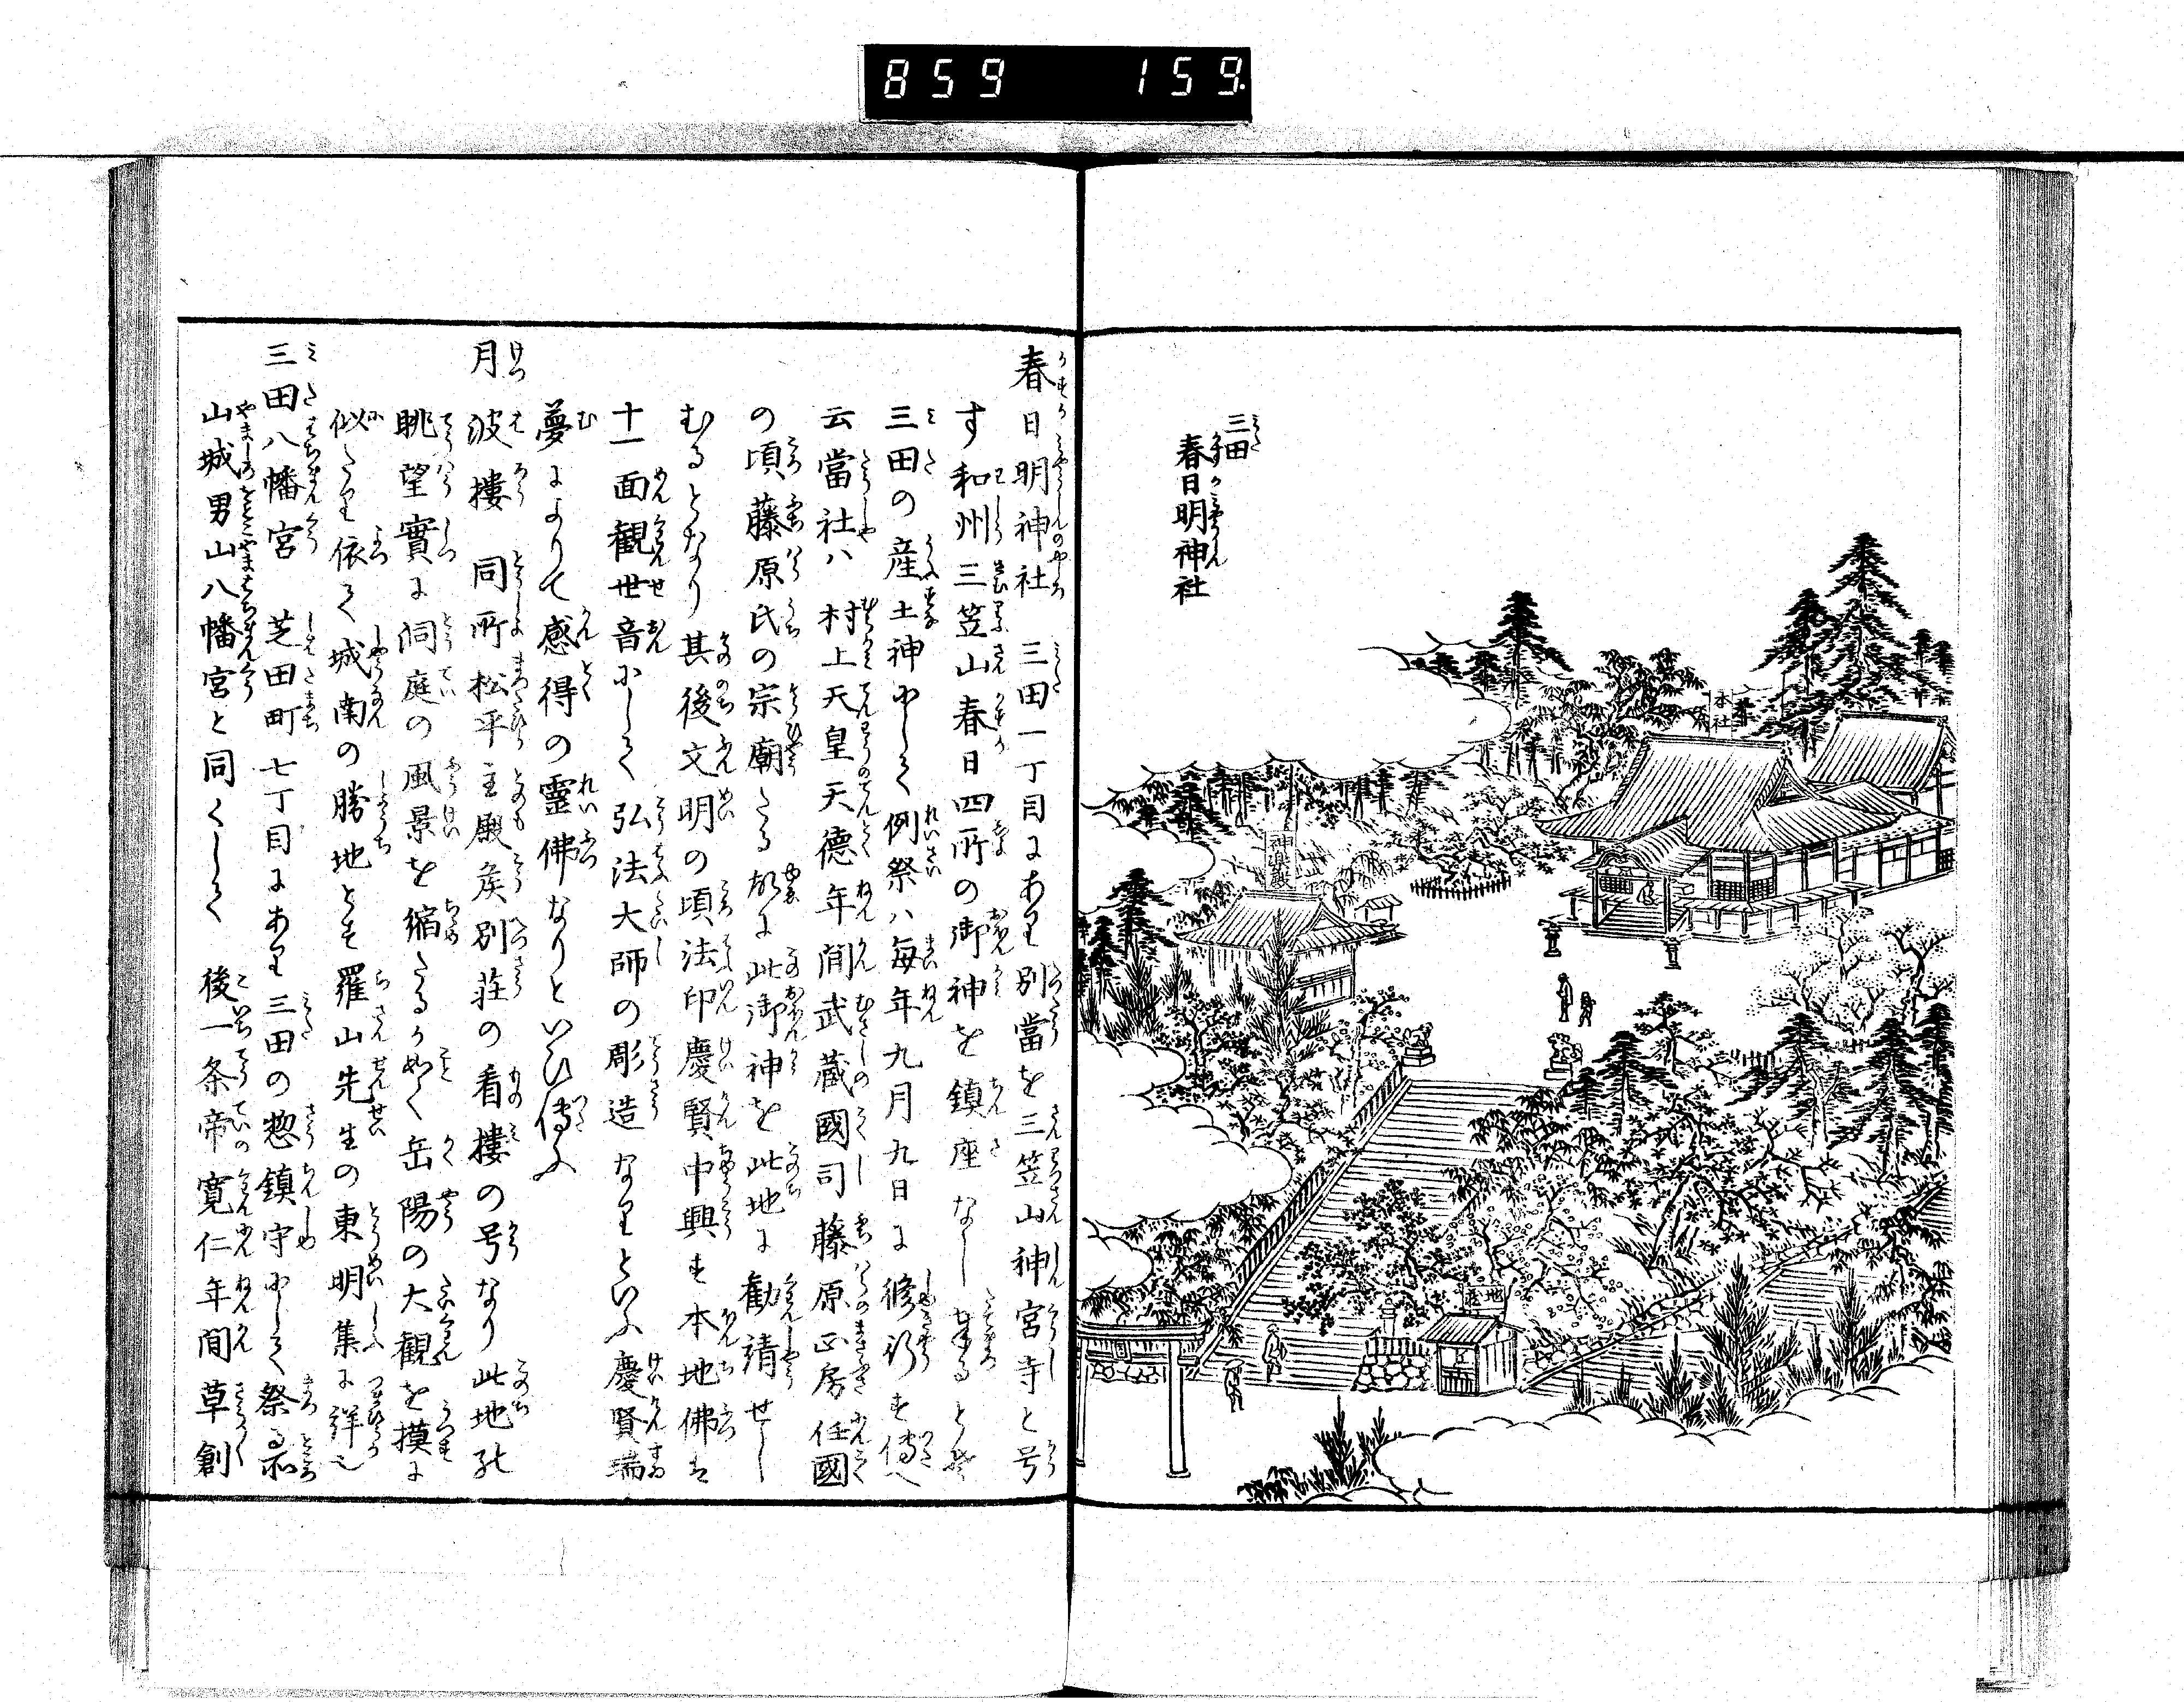 859 159
三田
春日明神社
本社
神楽殿
地蔵
春日明神社 三田一丁目にあり別當を三笠山神宮寺と号
す和州三笠山春日四所の御神を鎮座なし奉ると
三田の産土神にして例祭ハ毎年九月九日に修行す傳へ
云當社ハ村上天皇天德年間武蔵國司藤原正房任國
の頃藤原氏の宗廟たる故に此御神を此地に勧請せし
むるとなり其後文明の頃法印慶賢中興す本地佛は
十一面観世音にして弘法大師の彫造なりといふ慶賢瑞
夢によりて感得の靈佛なりといひ傳ふ
月波樓 同所松平主殿矦別荘の看樓の号なり此地の
眺望實に洞庭の風景を縮たるかめく岳陽の大観を摸に
似たり依て城南の勝地とす羅山先生の東明集に詳也
三田八幡宮 芝田町七丁目にあり三田の惣鎮守にして祭る所
山城男山八幡宮と同くして 後一条帝寛仁年間草創